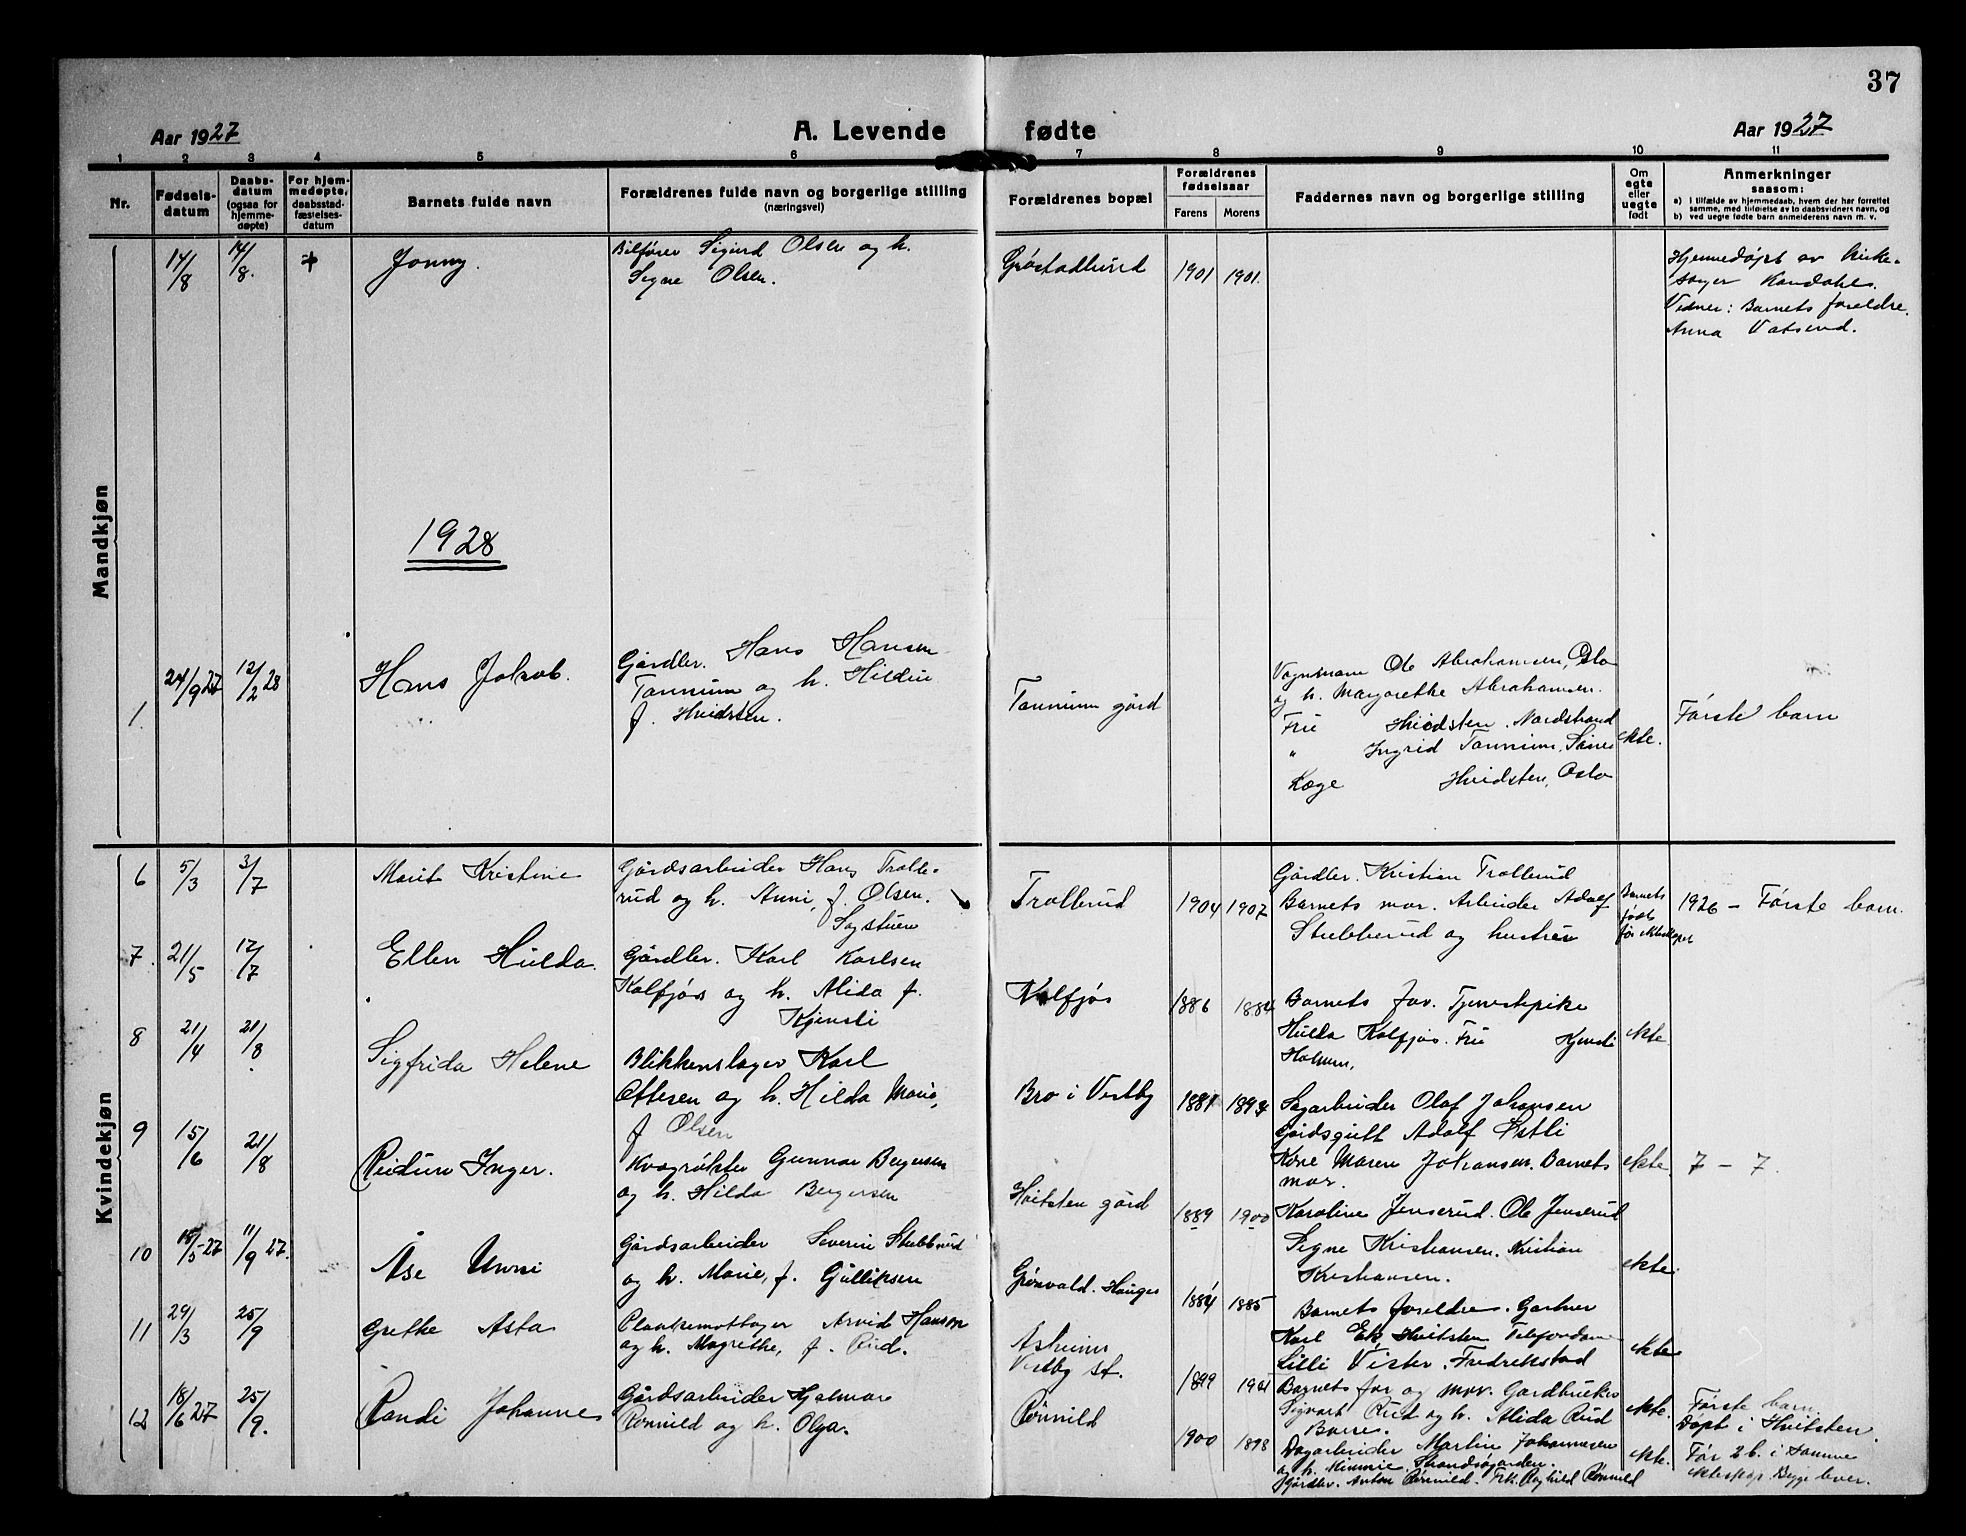 37
Aar 1927
A. Levende fødte
Aar 1927
1 2 3 4 5 6 7 8 9 10 11
Nr.
Fødsels-
datum
Daabs-
datum
(ogsaa for
hjemme-
døpte)
For hjem-
medøpte,
daabsstad-
fæstelses-
datum
Barnets fulde navn
Forældrenes fulde navn og borgerlige stilling
(næringsvei)
Forældrenes bopæl
Forældrenes
fødselsaar
Farens Morens
Faddernes navn og borgerlige stilling
Om
egte
eller
uegte
født
Anmerkninger
saasom:
a) i tilfælde av hjemmedaab, hvem der har forrettet
samme, med tilføielse av to daabsvidners navn, og
b) ved uegte fødte barn anmelderens navn m. v.
Mandkjøn
14/8 14/8. +
Jonny.
Bilfører Sigurd Olsen og h.
Signe Olsen.
Grøstadlund
1901 1901.
Hjemmedøpt av kirke-
sanger
Vidner: Barnets foreldre.
Anna Vatsend.
1928
1
24/9 27 12/2 28
Hans Jakob.
Gårdbr. Hans Hansen
Tannum og h. Hildur
f. Hvidsten.
Tannum gård
Vognmann Ole Abrahamsen, Oslo
og h. Margarethe Abrahamsen.
Fru Hvidsten. Nordstrand
" Ingrid Tannum,
Hvidsten, Oslo
ekte.
Første barn
Kvindekjøn
6 5/3 3/7
Marit Kristine
Gårdsarbeider Hans Trolle-
rud og h. Anni, f. Olsen.
Sagstuen
Trollerud
1904 1907
Gårdbr. Kristian Trollerud
Barnets mor. Arbeider Adolf
Stubberud og hustru
Barnets
født
før ekteskapet
1926 - Første barn.
7. 21/5 17/7
Ellen Hulda.
Gårdbr. Karl Karlsen
Kolfjøs og h. Alida f.
Kjensli
Kolfjøs
1886 1884
Barnets far. Tjenestepike
Hulda Kolfjøs. Fru
Holmen.
ekte
8 21/4 21/8.
Sigfrida Helene
Blikkenslager Karl
Ottesen og h. Hilda Marie,
f Olsen
Bro i Vestby
1881 1894
Sagarbeider Olaf Johansen
Gårdsgutt Adolf Østli
Kone Maren Johansen. Barnets
mor.
ekte. 7 - 7.
9 15/6 21/8
Reidun Inger.
Kvægrøkter Gunnar Bergersen
og h. Hilda Bergersen
Hvitsten gård
1889 1900
Karoline Jenserud. Ole Jenserud
Signe Kristiansen. Kristian
Kristiansen.
ekte
10 18/5-27 11/9 27.
Åse Unni
Gårdsarbeider Severin Stubberud
og h. Marie, f. Gulliksen
Grønvold. Hauger
1884 1885
Barnets foreldre. Gartner
Karl Ek, Hvitsten Telefondame
Lilli Vister. Fredrikstad
ekte
11 29/3 25/9
Grethe Asta
Plankemottager Arvid Hanson
og h. Magrethe, f. Rud.
Asheim
Vestby st.
1899 1901
Barnets far og mor. Gardbruker
Sigvart Rud og h. Alida Rud
ekte.
Første barn.
Døpt i Hvitsten.
12 18/6 27 25/9.
Randi Johanne
Gårdsarbeider Hjalmar
Rønnild og h. Olga.
Rønnild
1900 1898
Dagarbeider Martin Johannesen
og h. Minnie. Strandsgården.
Gårdbr. Anton Rønnild. Frk. Ragnhild Rønnild
ekte.
Før 2 b. i samme
ekteskap. Begge lever.